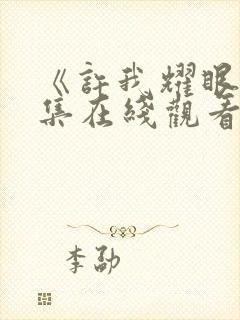 《許我耀眼
集在綫觀看
李劭